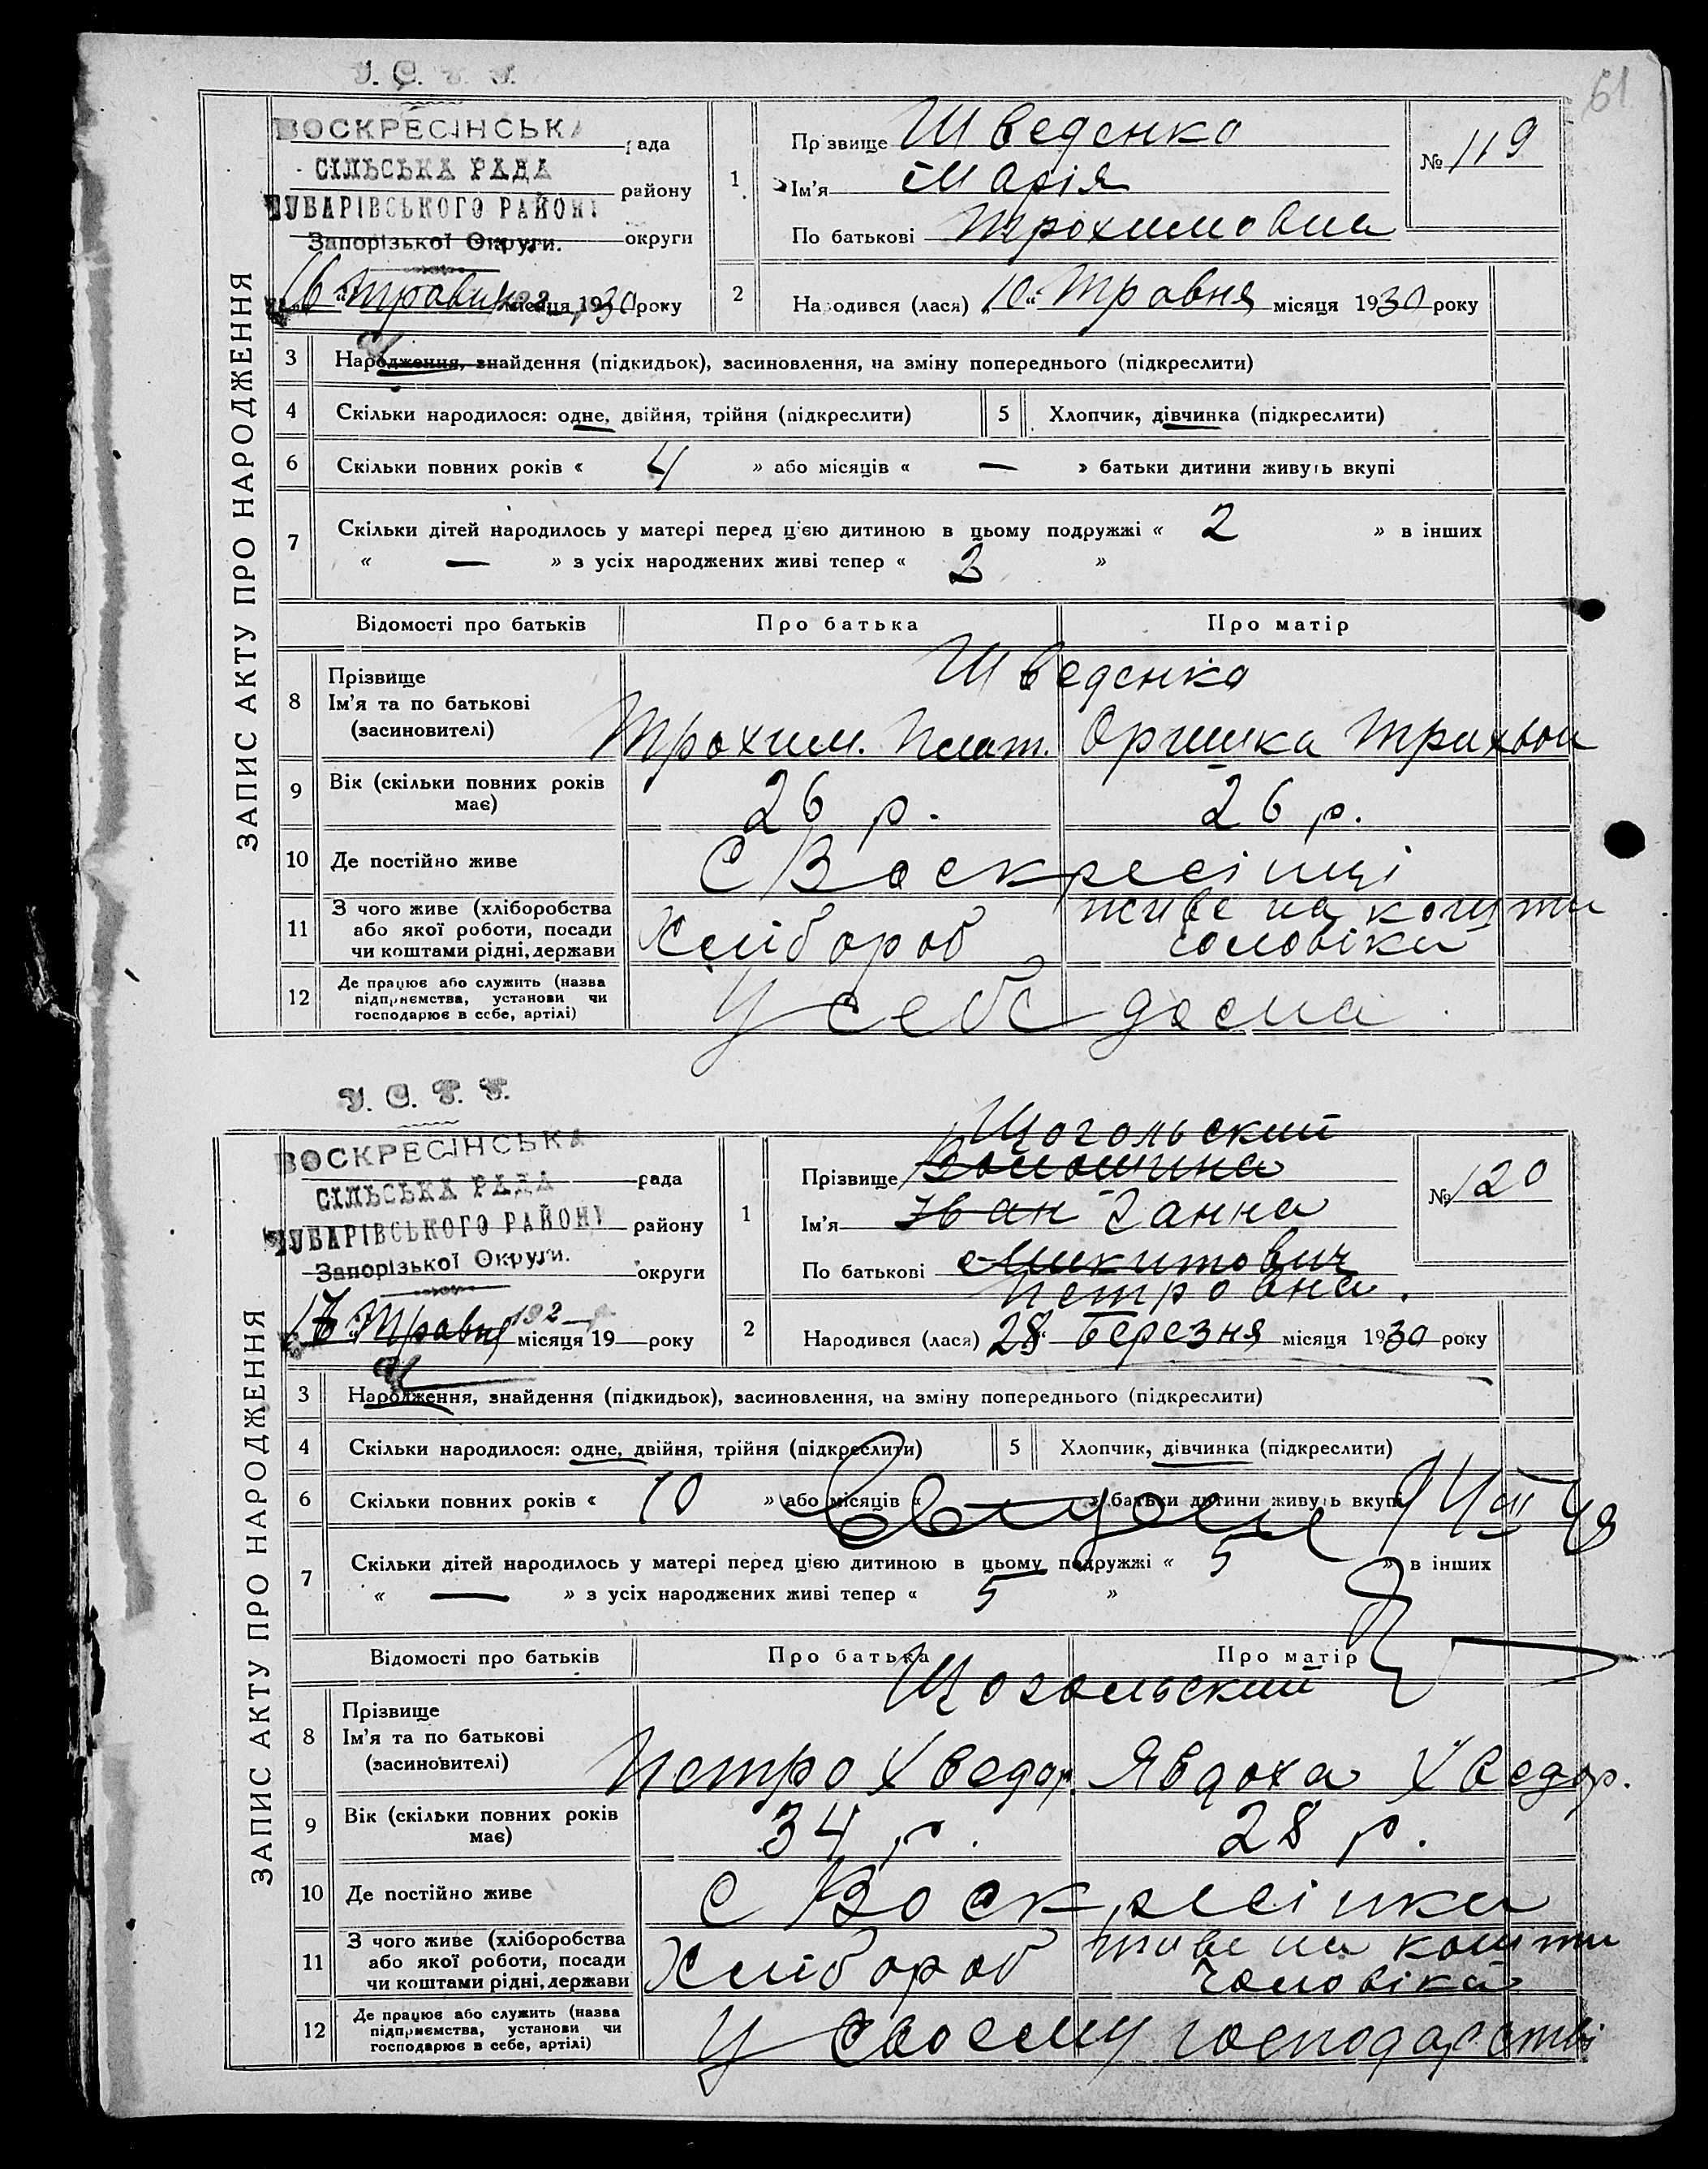 61
У. С. Р. Р.
ВОСКРЕСІНСЬКА рада
СІЛЬСЬКА РАДА району
ЧУБАРІВСЬКОГО РАЙОНУ
Запорізької Округи. округи
16 Травня місяця 1930 року
ЗАПИС АКТУ ПРО НАРОДЖЕННЯ
1 Прізвище Шведенко
Ім'я Марія
По батькові Трохимовна
№ 119
2 Народився (лася) 10 „ Травня місяця 1930 року
3 Народження, знайдення (підкидьок), засиновлення, на зміну попереднього (підкреслити)
4 Скільки народилося: одне, двійня, трійня (підкреслити) 5 Хлопчик, дівчинка (підкреслити)
6 Скільки повних років « 4 » або місяців « — » батьки дитини живуть вкупі
7 Скільки дітей народилось у матері перед цією дитиною в цьому подружжі « 2 » в інших
« — » з усіх народжених живі тепер « 3 »
Відомості про батьків Про батька Про матір
8 Прізвище Шведенко
Ім'я та по батькові
(засиновителі) Трохим. Оришка
9 Вік (скільки повних років має) 26 р. 26 р.
10 Де постійно живе С Воскресінці
11 З чого живе (хліборобства або якої роботи, посади чи коштами рідні, держави Хлібороб живе на кошти чоловіка
12 Де працює або служить (назва підприємства, установи чи господарює в себе, артілі) У себе дома
У. С. Р. Р.
ВОСКРЕСІНСЬКА рада
СІЛЬСЬКА РАДА району
ЧУБАРІВСЬКОГО РАЙОНУ
Запорізької Округи. округи
17 Травня 192 місяця 19 року
ЗАПИС АКТУ ПРО НАРОДЖЕННЯ
Щогольский
1 Прізвище Волошина
Ім'я Іван Ганна
По батькові Микитович
Петровна.
№ 120
2 Народився (лася) 28 „ Березня місяця 1930 року
3 Народження, знайдення (підкидьок), засиновлення, на зміну попереднього (підкреслити)
4 Скільки народилося: одне, двійня, трійня (підкреслити) 5 Хлопчик, дівчинка (підкреслити)
6 Скільки повних років « 10 » або місяців « » батьки дитини живуть вкупі
7 Скільки дітей народилось у матері перед цією дитиною в цьому подружжі « 5 » в інших
« — » з усіх народжених живі тепер « 5 »
Відомості про батьків Про батька Про матір
8 Прізвище Щогольский
Ім'я та по батькові
(засиновителі) Петро Хведор. Явдоха Хведор.
9 Вік (скільки повних років має) 34 р. 28 р.
10 Де постійно живе С Воскресінка
11 З чого живе (хліборобства або якої роботи, посади чи коштами рідні, держави Хлібороб живе на кошти чоловіка
12 Де працює або служить (назва підприємства, установи чи господарює в себе, артілі) У своему господарстві